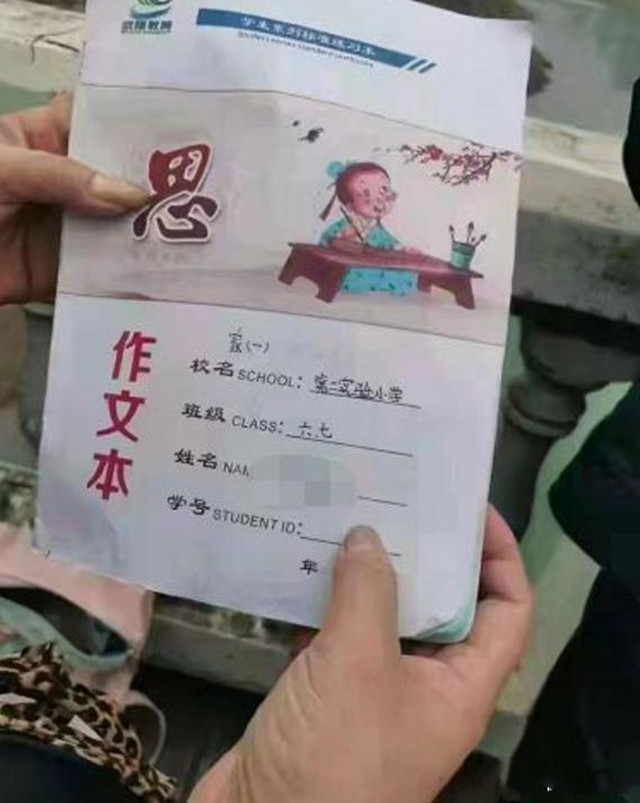 学生系列标准练习本
思
家(一)
校名 SCHOOL: 第一实验小学
班级 CLASS: 六七
姓名 NAM
学号 STUDENT ID:
年
作文本